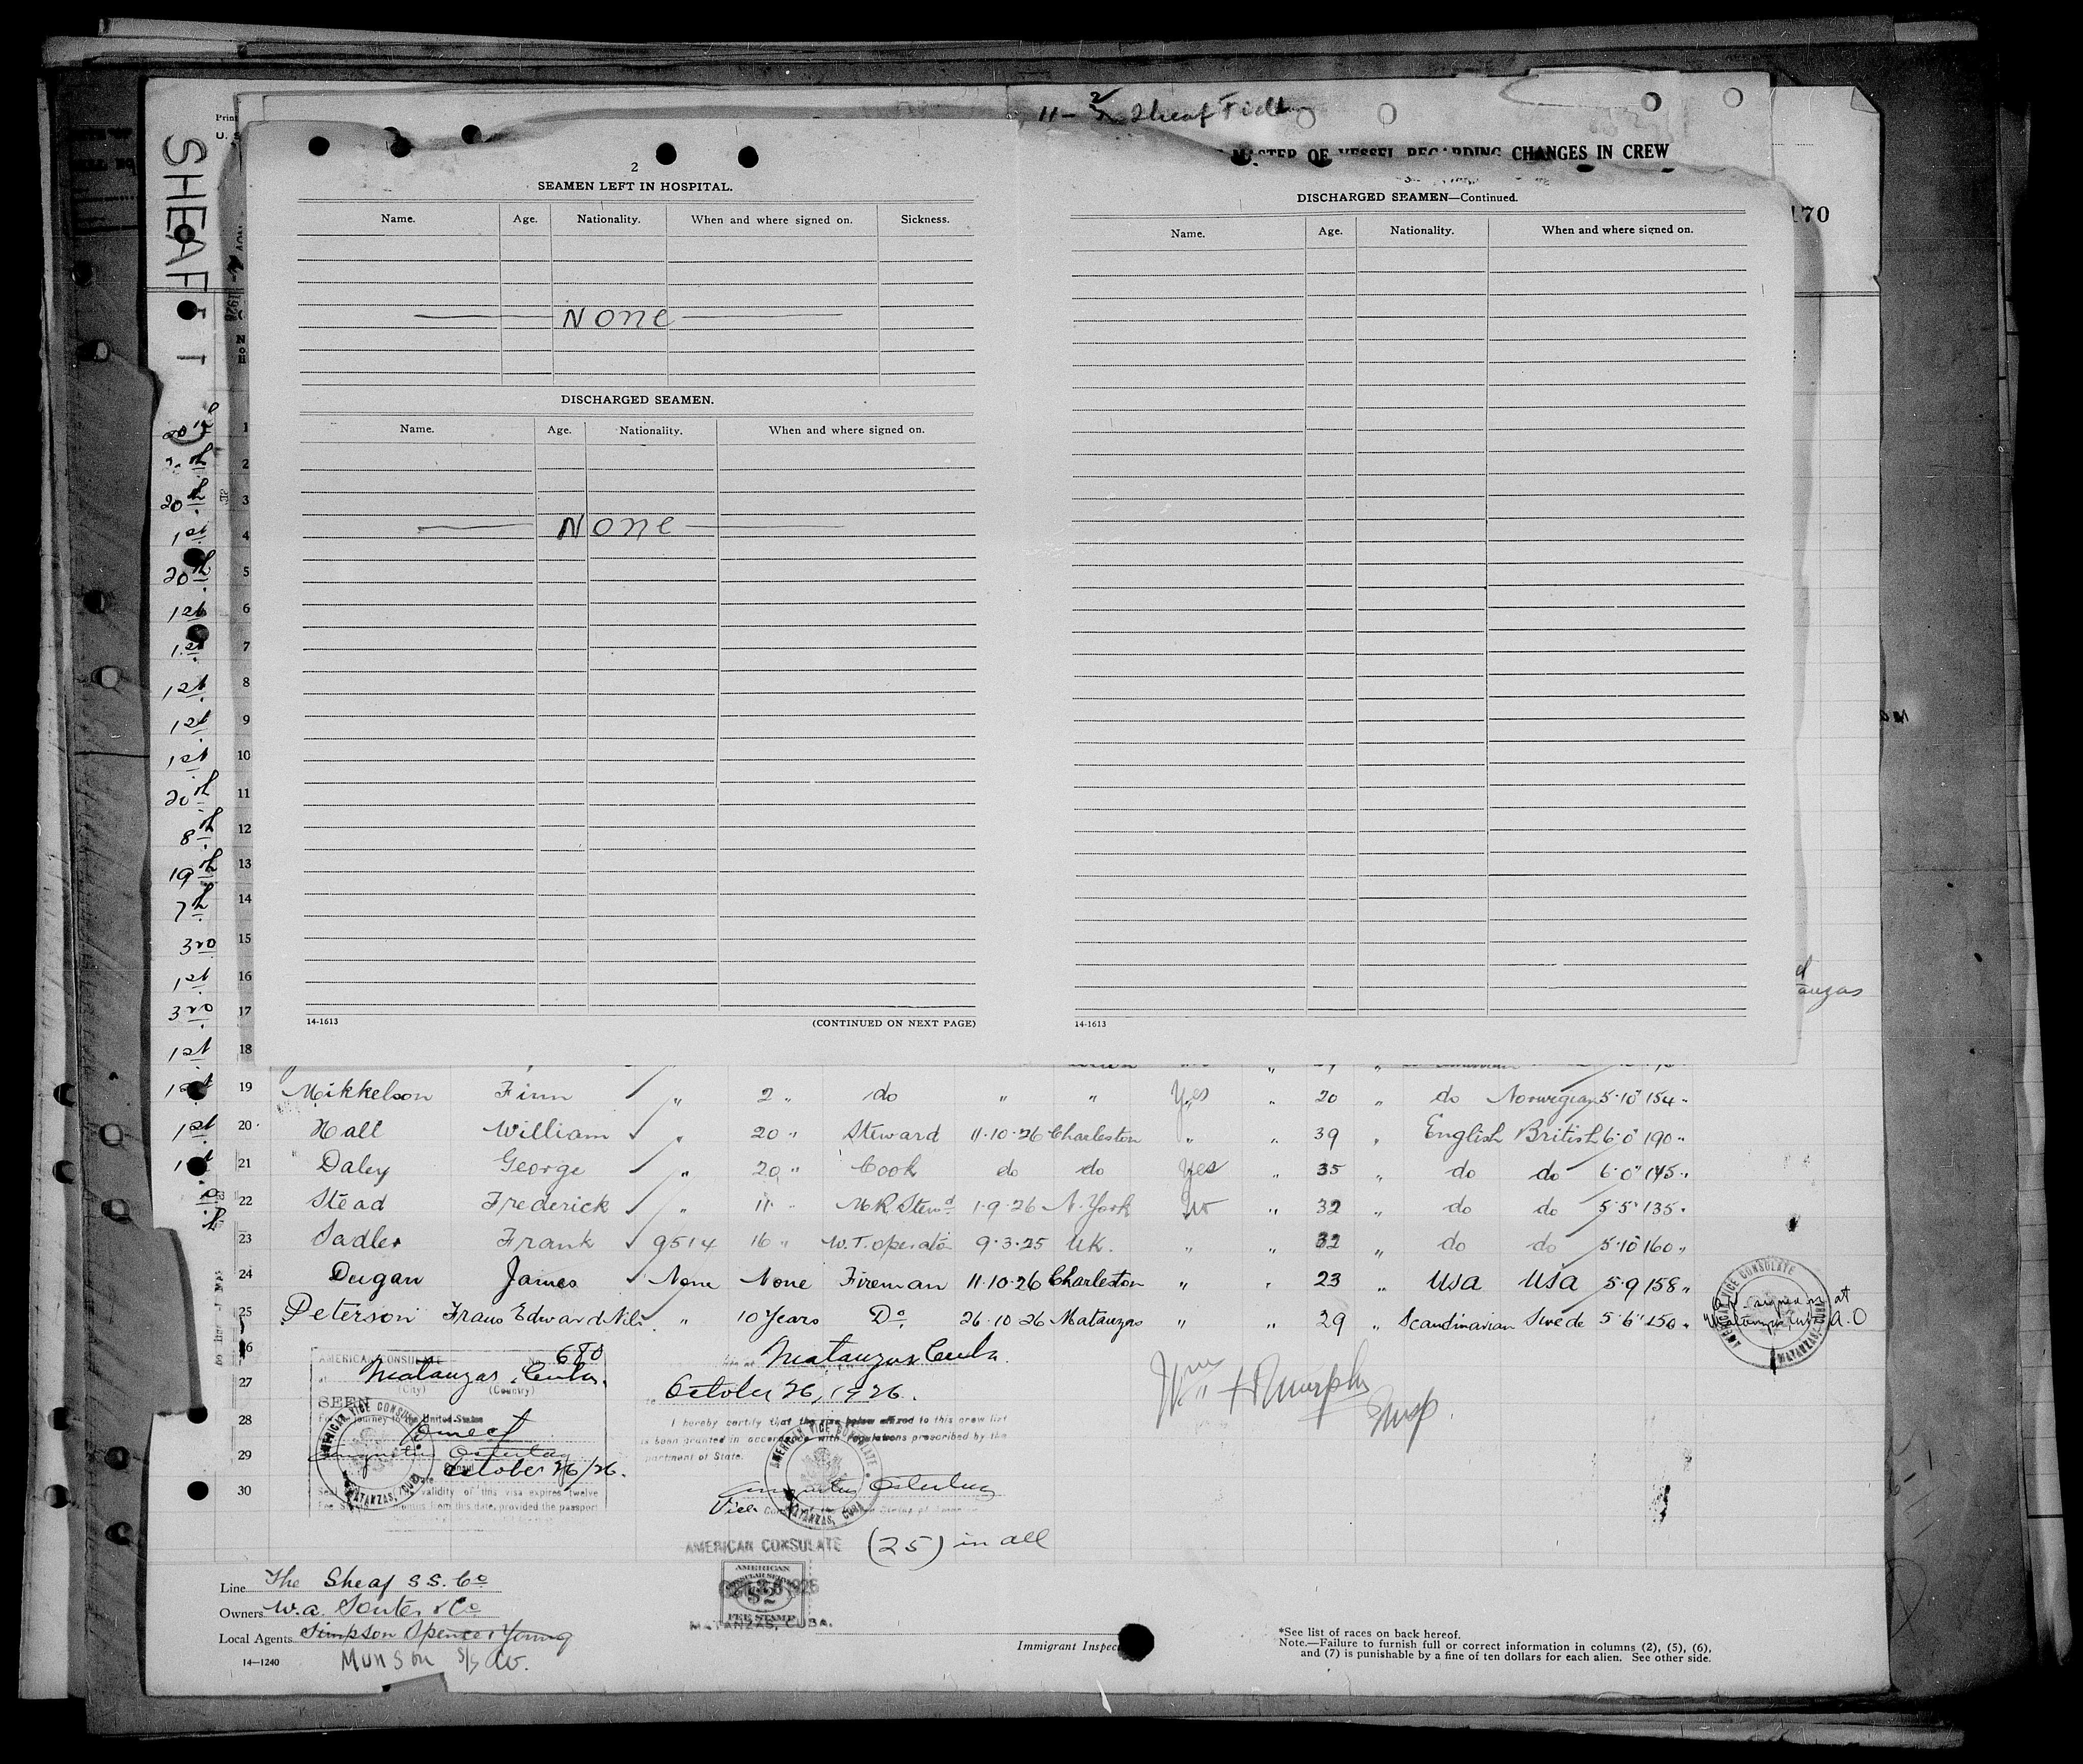 11-2 Sheaf Field
MASTER OF VESSEL REGARDING CHANGES IN CREW
SHEAF
170
2
SEAMEN LEFT IN HOSPITAL.
Name. Age. Nationality. When and where signed on. Sickness.
None
DISCHARGED SEAMEN.
Name. Age. Nationality. When and where signed on.
None
14-1613 (CONTINUED ON NEXT PAGE)
DISCHARGED SEAMEN—Continued.
Name. Age. Nationality. When and where signed on.
14-1613
1
2
20th 3
1st 4
20th 5
1st 6
1st 7
1st 8
1st 9
1st 10
20th 11
8th 12
19th 13
7th 14
3rd 15
1st 16
3rd 17
1st 18
1st 19 Mikkelson Finn " 2 " do " " Yes " 20 " do Norwegian 5·10" 154 "
1st 20 Hall William " 20 " Steward 11·10·26 Charleston " " 39 " English British 6·0" 190 "
21 Daley George " 20 " Cook do do Yes " 35 " do do 6·0" 145 "
22 Stead Frederick " 11 " M.R. Stewd 1·9·26 N. York No " 32 " do do 5·5" 135 "
23 Sadler Frank 9514 16 " W.T. operator 9·3·25 UK. " " 32 " do do 5·10" 160 "
24 Dugan James None None Fireman 11·10·26 Charleston " " 23 " USA USA 5·9 158 "
25 Peterson Frans Edward Nils " 10 Years Do 26·10·26 Matanzas " " 29 " Scandinavian Swede 5'6" 150 "
signed on at
A.O
AMERICAN VICE CONSULATE
MATANZAS
26
27
28
29
30
AMERICAN CONSULATE 680
at Matanzas, Cuba.
(City) (Country)
SEEN
For the journey to the United States
Direct
October 26/26.
validity of this visa expires twelve
months from this date, provided the passport
AMERICAN VICE CONSULATE
MATANZAS, CUBA
Matanzas Cuba.
October 26, 1926.
I hereby certify that the visa below affixed to this crew list
is been granted in accordance with regulations prescribed by the
partment of State.
AMERICAN VICE CONSULATE
MATANZAS, CUBA
Vice
AMERICAN CONSULATE (25) in all
AMERICAN
$2
FEE STAMP
MATANZAS, CUBA.
Wm H Murphy
Insp.
Line The Sheaf S.S. Co
Owners W.A. Souter & Co
Local Agents Simpson Spence & Young
Munson S/S Co.
14—1240
Immigrant Inspec
*See list of races on back hereof.
Note.—Failure to furnish full or correct information in columns (2), (5), (6),
and (7) is punishable by a fine of ten dollars for each alien. See other side.